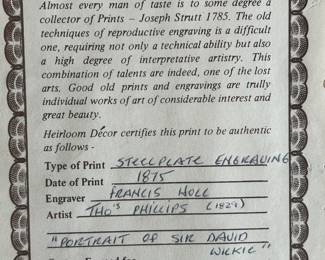 Almost every man of taste is to some degree a
collector of Prints – Joseph Strutt 1785. The old
techniques of reproductive engraving is a difficult
one, requiring not only a technical ability but also
a high degree of interpretative artistry. This
combination of talents are indeed, one of the lost
arts. Good old prints and engravings are trully
individual works of art of considerable interest and
great beauty.
Heirloom Décor certifies this print to be authentic
as follows -
Type of Print STEELPLATE ENGRAVING
Date of Print 1875
Engraver FRANCIS HOLL
Artist THOS PHILLIPS (1829)
"PORTRAIT OF SIR DAVID
WILKIE"